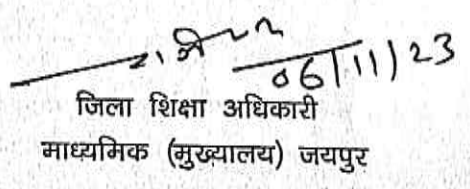 06/11/23
जिला शिक्षा अधिकारी
माध्यमिक (मुख्यालय) जयपुर